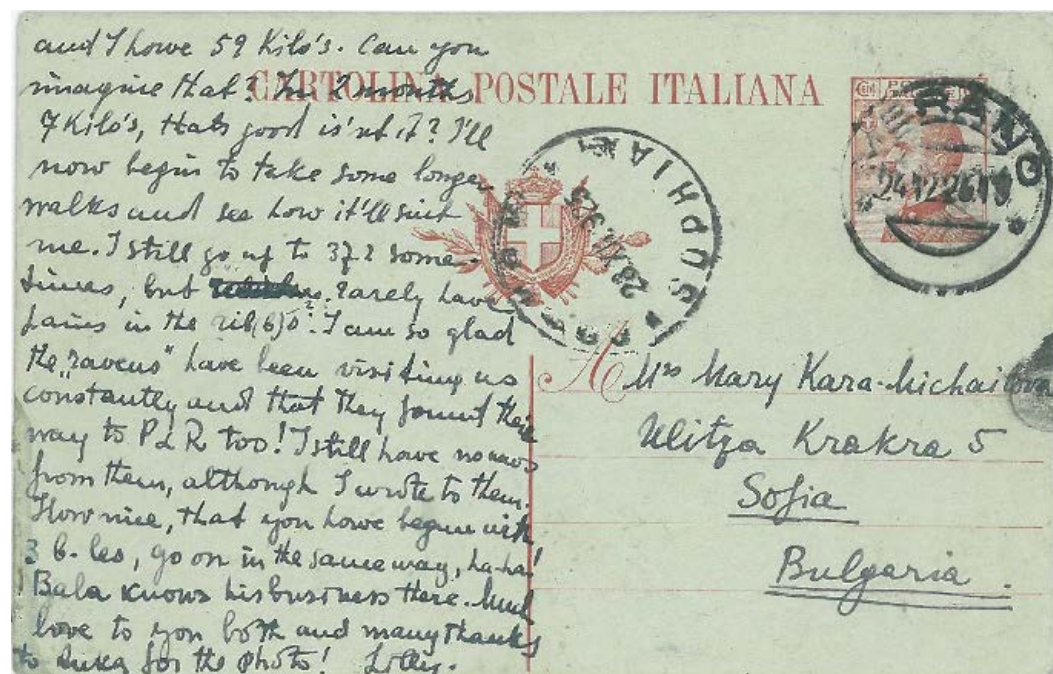 and I have 59 Kilo's. Can you
imagine that? In 2 months
7 Kilo's, thats good is'nt it? I'll
now begin to take some longer
walks and see how it'll suit
me. I still go up to 37.2 some-
times, but rarely have
pains in the rib(b)s?. I am so glad
the „ravens“ have been visiting us
constantly and that they found their
way to P & R too! I still have no news
from them, although I wrote to them.
How nice, that you have begun with
3 b-les, go on in the same way, ha-ha!
Bala knows his business there. Much
love to you both and many thanks
to for the photo! Lilly.
CARTOLINA POSTALE ITALIANA
24.12.26.19
SOPHIA
28.XII.926
A Mrs Mary Kara-Michailova
Ulitza Krakra 5
Sofia
Bulgaria.